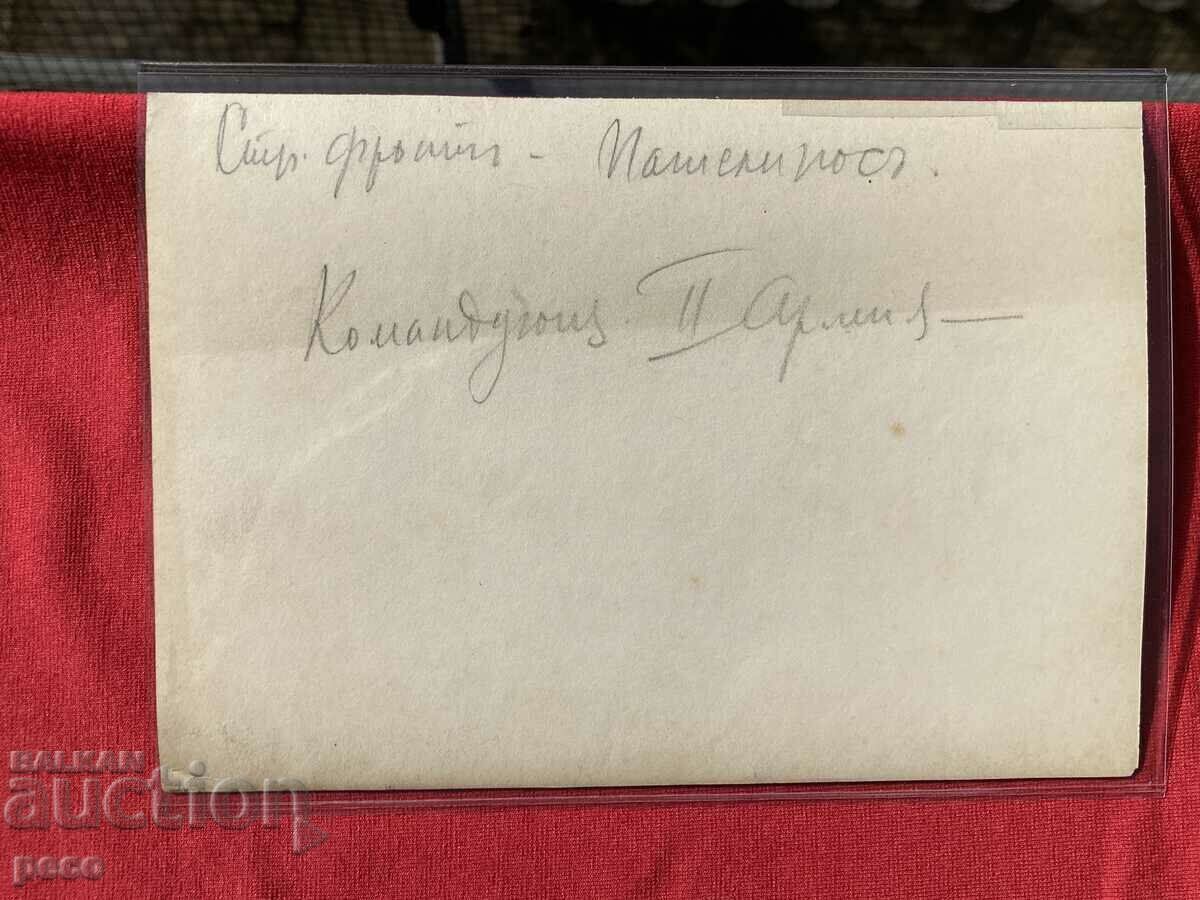 Стр. фронтъ - Патениросъ.
Командующъ II Армия
BALKAN
auction
peco